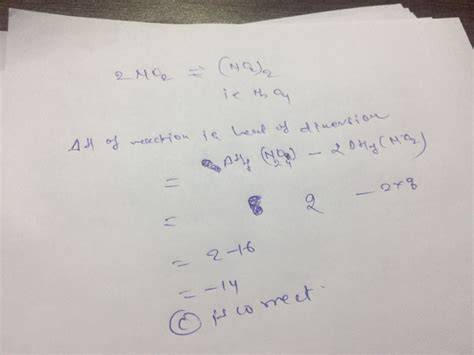 2NO2 ⇌ (NO2)2
ie N2O4
ΔH of reaction is heat of dimersion
= ΔHf (NO2)2 - 2ΔHf(NO2)
= 2 - 2×8
= 2-16
= -14
(C) is correct.